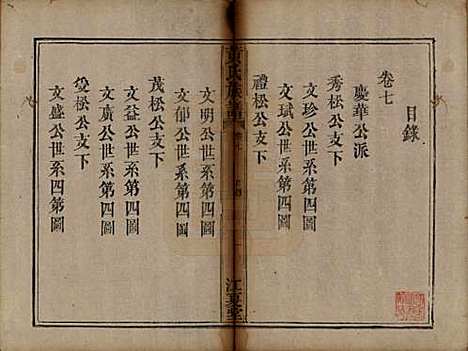 目錄
卷七
慶華公派
秀松公支下
文珍公世系第四圖
文斌公世系第四圖
禮松公支下
黃氏族譜
江夏堂
文明公世系第四圖
文郁公世系第四圖
茂松公支下
文益公世系第四圖
文廣公世系第四圖
受松公支下
文盛公世系四第圖